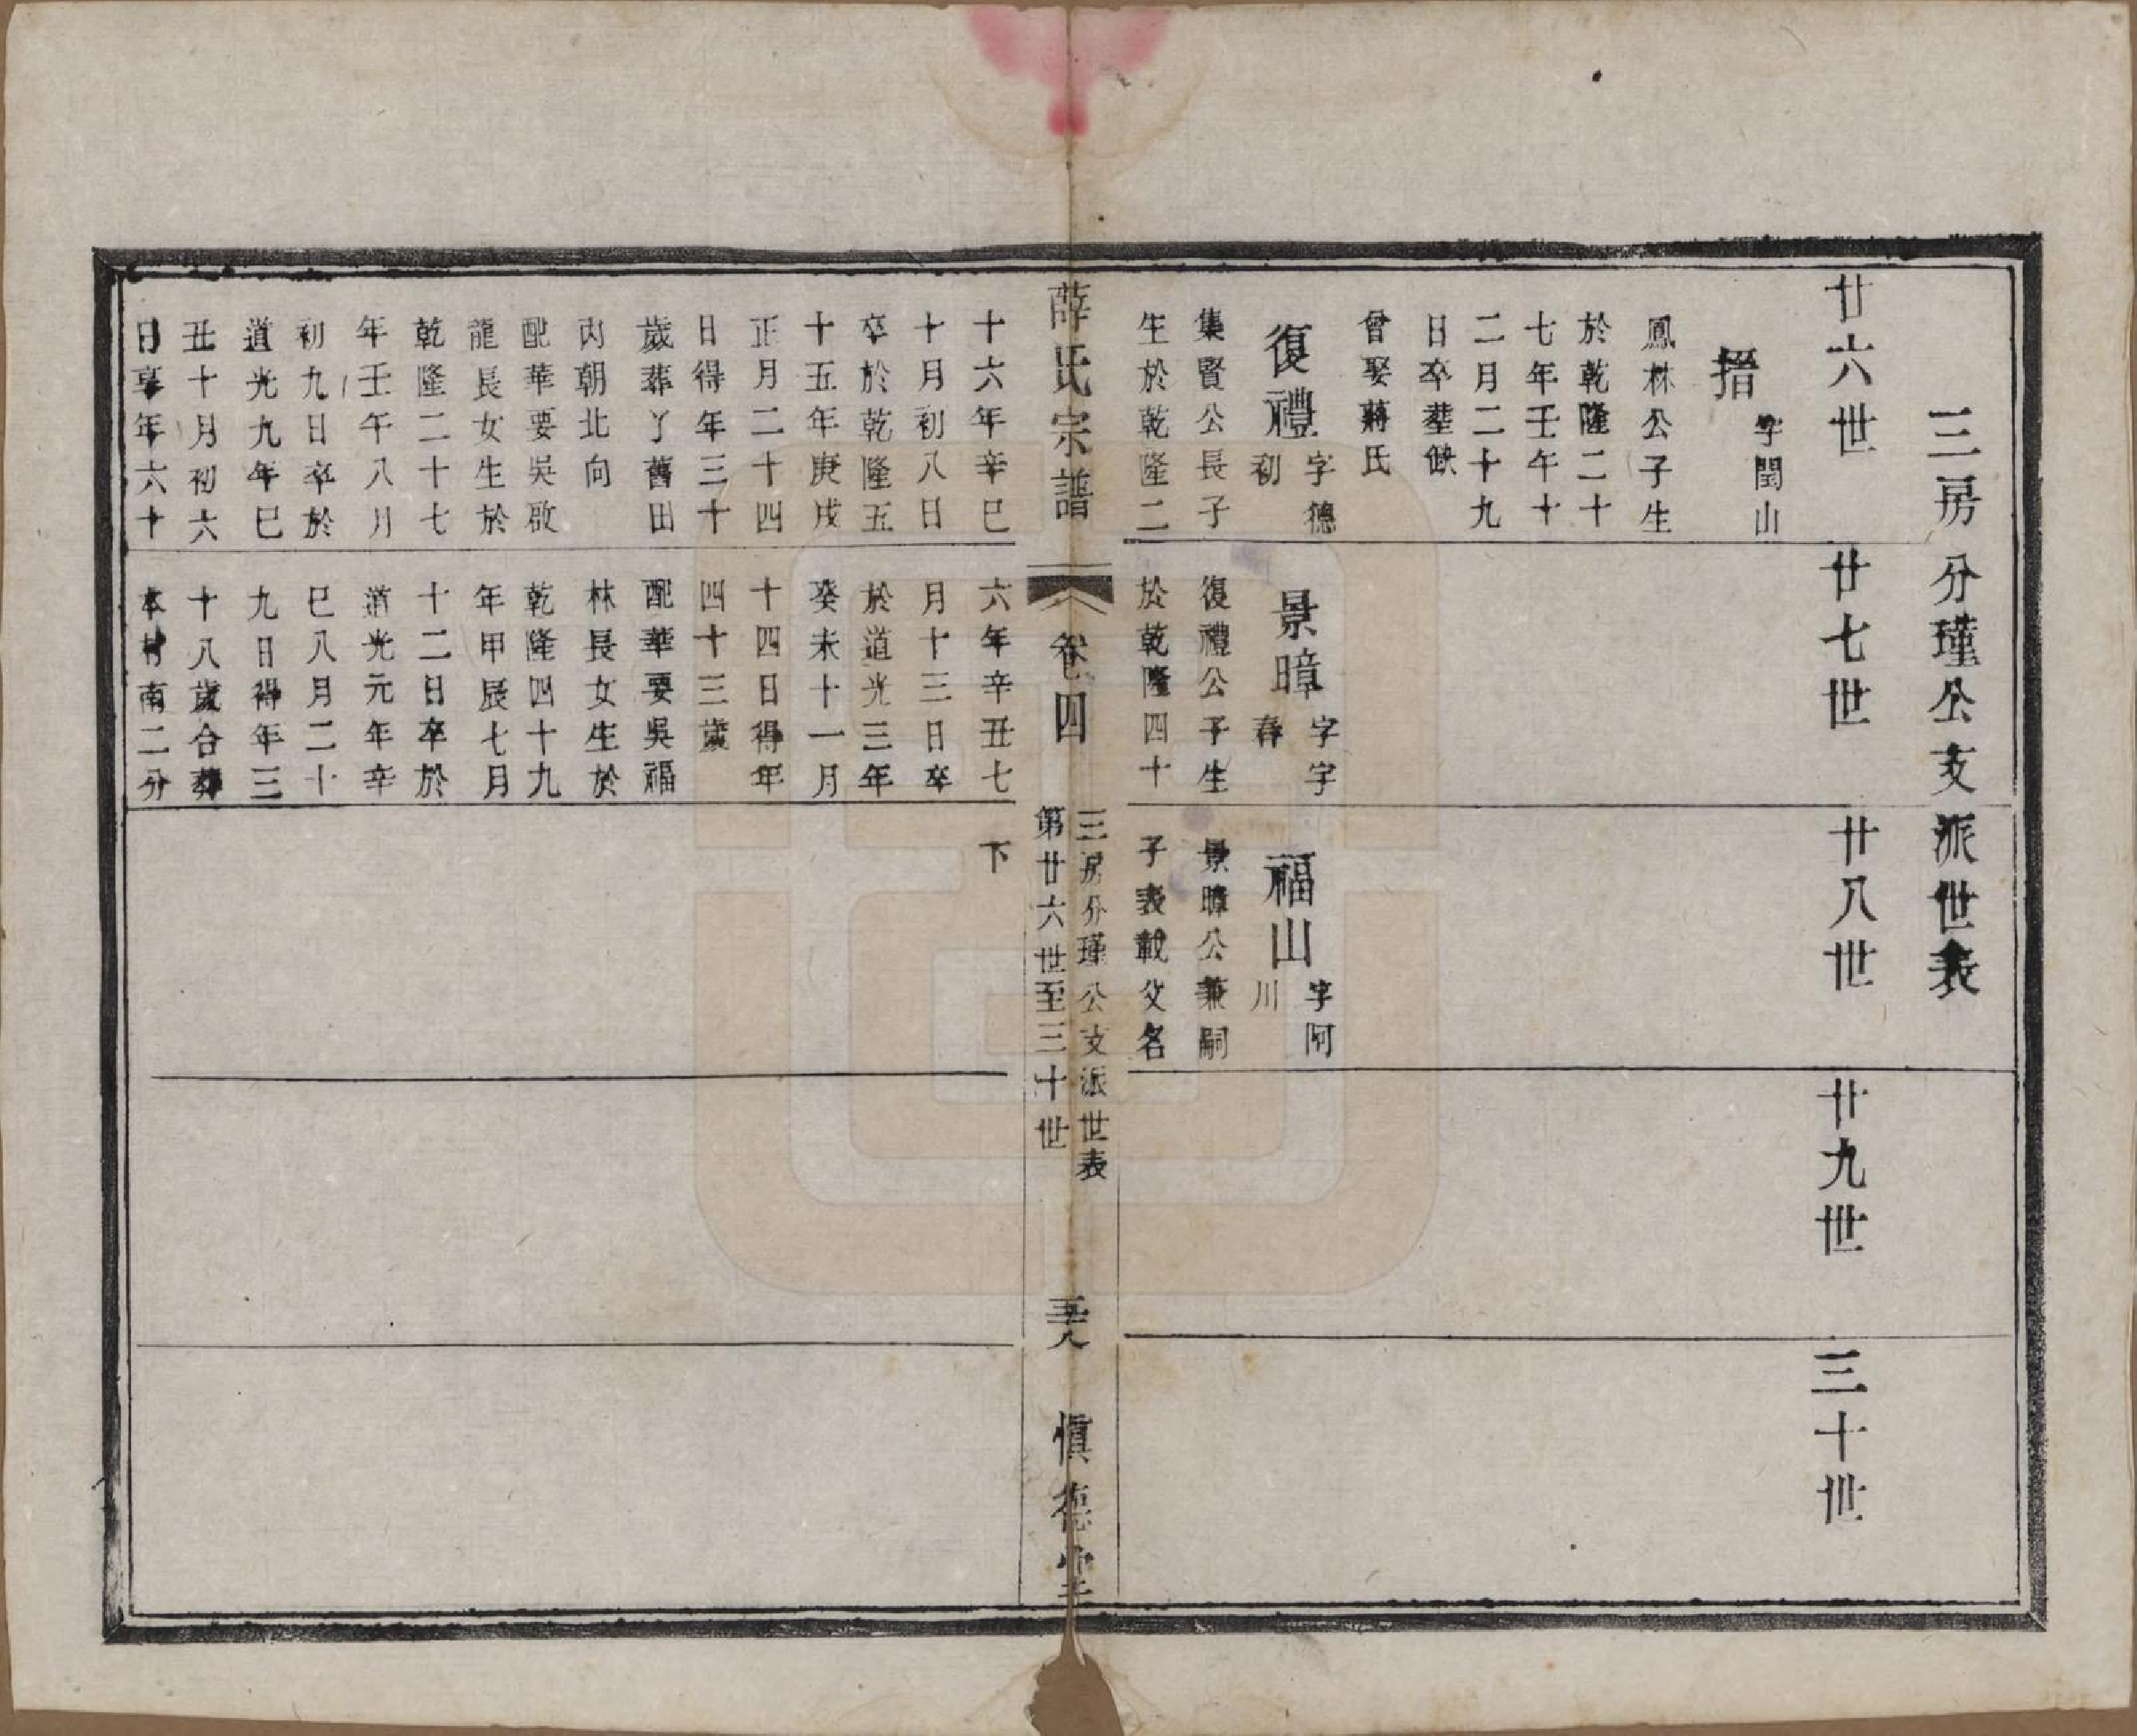 三房分瑾公支派世表
廿六世
廿七世
廿八世
廿九世
三十世
搢
字閏山
鳳林公子生
於乾隆二十
七年壬午十
二月二十九
日卒塟缺
曾娶蔣氏
復禮
字德
初
集賢公長子
生於乾隆二
十六年辛巳
十月初八日
卒於乾隆五
十五年庚戌
正月二十四
日得年三十
歲葬丫舊田
丙朝北向
配華要吳啟
龍長女生於
乾隆二十七
年壬午八月
初九日卒於
道光九年巳
丑十月初六
日享年六十
景暲
字字
春
復禮公子生
於乾隆四十
六年辛丑七
月十三日卒
於道光三年
癸未十一月
十四日得年
四十三歲
配華要吳福
林長女生於
乾隆四十九
年甲辰七月
十二日卒於
道光元年辛
巳八月二十
九日得年三
十八歲合葬
本村南二分
福山
字阿
川
景暲公兼嗣
子表載父名
下
薛氏宗譜
卷四
三房分瑾公支派世表
第廿六世至三十世
慎德堂